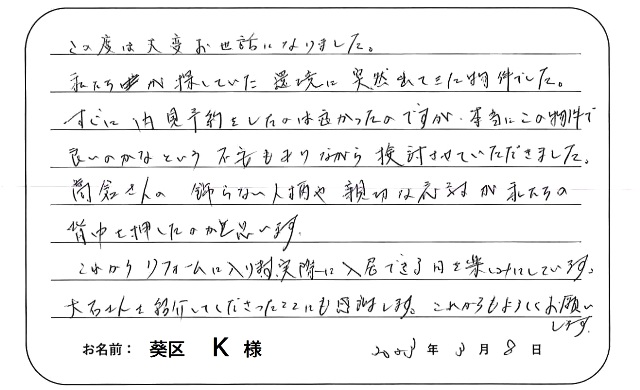 この度は大変お世話になりました。
私たちが探していた環境に突然出てきた物件でした。
すぐに内見予約をしたのは良かったのですが、本当にこの物件で
良いのかなという不安もありながら検討させていただきました。
高倉さんの飾らない人柄や親切な応対が私たちの
背中を押したのかと思います。
これからリフォームに入り、実際に入居できる日を楽しみにしています。
大石さんを紹介してくださったことにも感謝します。これからもよろしくお願い
します。
お名前： 葵区 K 様
2023年3月8日